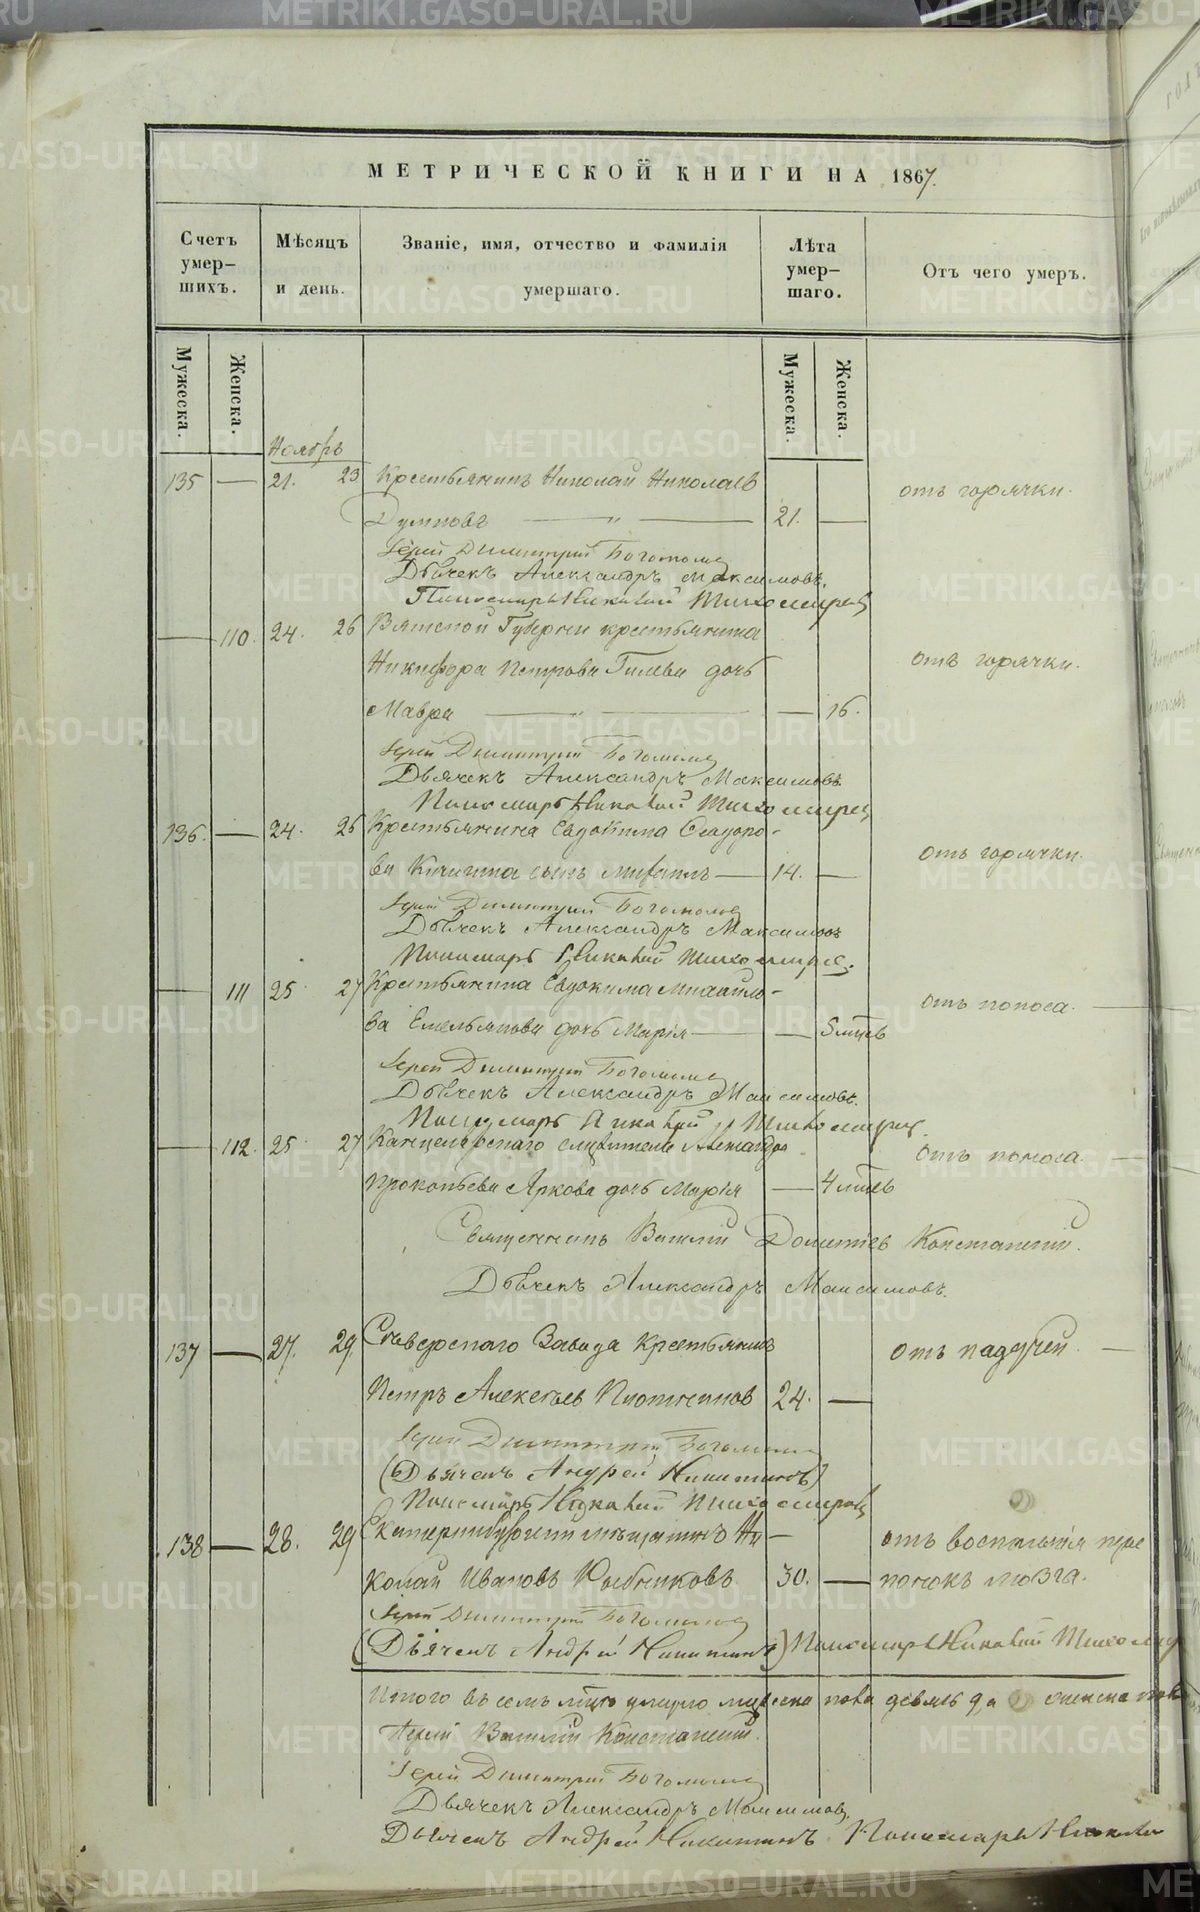 МЕТРИЧЕСКОЙ КНИГИ НА 1867.
Счетъ умер-шихъ.
Мѣсяцъ и день.
Званіе, имя, отчество и фамилія умершаго.
Лѣта умер-шаго.
Отъ чего умеръ.
Мужеска.
Женска.
Мужеска.
Женска.
Ноябрь
135 — 21. 23 Крестьянинъ Николай Николаевъ отъ горячки.
Думновъ — " — 21. —
Іерей Димитрій Богомоловъ
Дьячекъ Александръ Максимовъ.
Пономарь Николай Тихомировъ
— 110. 24. 26 Вятской Губерніи крестьянина
Никифора Петрова Гилева дочь отъ горячки.
Мавра — " — — 16.
Іерей Димитрій Богомоловъ
Дьячекъ Александръ Максимовъ
Пономарь Николай Тихомировъ
136. — 24. 26 Крестьянина Евдокима Ѳеодоро-
ва Кичигина сынъ Михаилъ — 14. — отъ горячки.
Іерей Димитрій Богомоловъ
Дьячекъ Александръ Максимовъ
Пономарь Николай Тихомировъ.
— 111 25 27 Крестьянина Евдокима Михайло-
ва Емельянова дочь Марія — — 5 мцевъ отъ поноса.
Іерей Димитрій Богомоловъ
Дьячекъ Александръ Максимовъ.
Пономарь Николай Тихомировъ.
— 112. 25 27 Канцелярскаго служителя Александра
Прокопьева Яркова дочь Марія — 4 мцевъ отъ поноса.
Священникъ Василій Константин
Дьячекъ Александръ Максимовъ.
137 — 27. 29. Сысерскаго Завода крестьянинъ отъ падучей.
Петръ Алексѣевъ Плотниковъ 24. —
Іерей Димитрій Богомоловъ
Дьячекъ Андрей Никитинъ
Пономарь Николай Тихомировъ
138 — 28. 29 Екатеринбургскій мѣщанинъ Ни- отъ воспаленія пере
колай Ивановъ Рыбниковъ 30. — понокъ мозга.
Іерей Димитрій Богомоловъ
Дьячекъ Андрей Никитинъ Пономарь Николай Тихомиро
Итого въ семъ мцѣ умерло мужеска пола девять 9, а женска пола
Іерей Василій Константин
Іерей Димитрій Богомоловъ
Дьячекъ Александръ Максимовъ.
Дьячекъ Андрей Никитинъ Пономарь Николай
METRIKI.GASO-URAL.RU